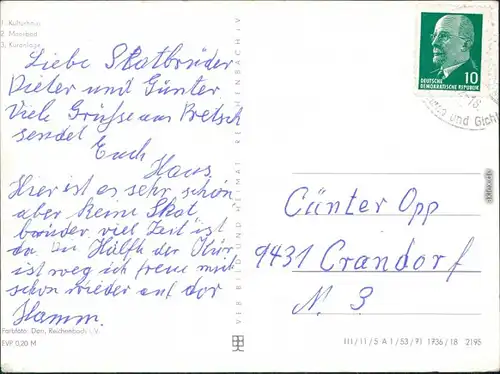 1. Kulturhaus
2. Moorbad
3. Kuranlage
Liebe Skatbrüder
Dieter und Günter
Viele Grüsse aus Pretsch
sendet
Euch
Hans.
Hier ist es sehr schön
aber keine Skat
brüder viel Zeit ist
da Die Hälfte der Kur
ist weg ich freue mich
schon wieder auf der
Hamm.
Farbfoto: Darr, Reichenbach i. V.
EVP 0,20 M
VEB BILD UND HEIMAT REICHENBACH i. V
10
DEUTSCHE
DEMOKRATISCHE REPUBLIK
-18
und Gicht
Günter Opp
9431 Crandorf
N. 3
III/11/5 A 1/53/71 1736/18 2195